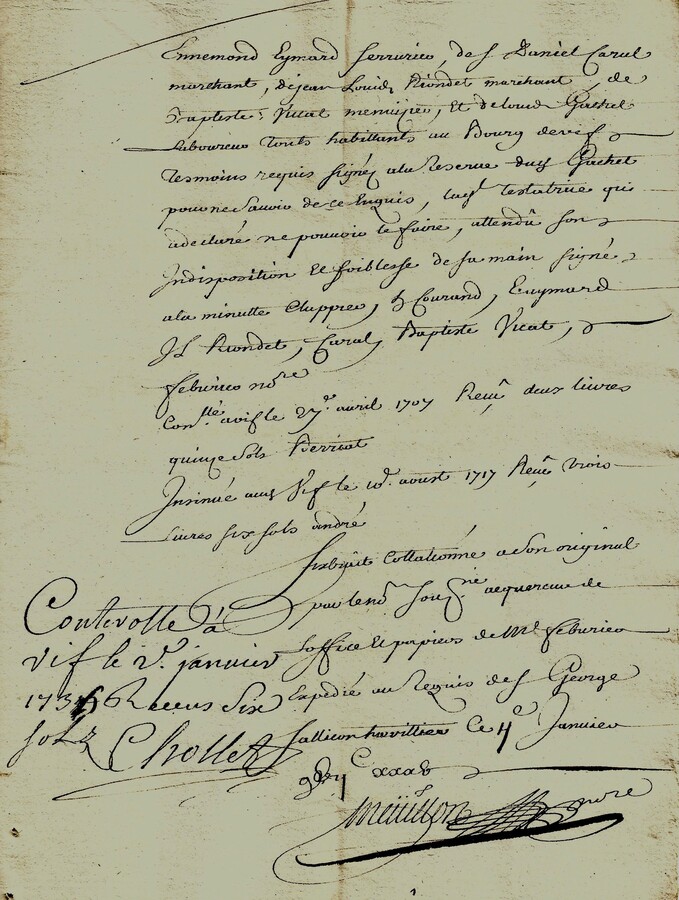 Ennemond Eymard serrurier, de s. Daniel Caral
marchant, de jean Louis Riondet marchant, de
Baptiste Vicat menusier, Et de louis Gachet
Laboureur touts habittants au Bourg de vif
tesmoins requis signés a la reserve dud. Gachet
pour ne sçavoir de ce Enquis, lad. testatrice qui
a declaré ne pouvoir le faire, attendû son
Indisposition Et foiblesse de sa main signé
a la minutte Clappre, Courand, Euymard
J L Riondet, Caral, Baptiste Vicat,
feburier no.re
Con.llé a vif le 27e. avril 1707 Reçu deux livres
quinze sols Berriat
Insinué aud. Vif le aoust 1717 Reçu trois
Livres six sols andré
Extrait Collationné a son original
par le no.re sous.né acquereur de
L'office Et papiers de Me. feburier
Expedié au Requis de s. George
ce 4e. Janvier
xxxv
Contrerolle à
vif le 2e. janvier
1736 Receus Six
sols Chollet